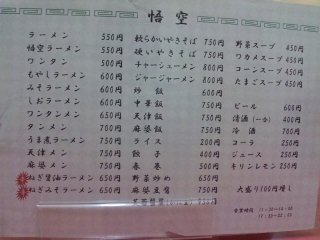 悟空
ラーメン 550円
悟空ラーメン 550円
ワンタン 500円
もやしラーメン 600円
みそラーメン 600円
しおラーメン 600円
ワンタンメン 650円
タンメン 700円
うま煮ラーメン 750円
天津メン 750円
麻婆メン 750円
ねぎ醤油ラーメン 650円
ねぎみそラーメン 650円
軟らかいやきそば 750円
硬いやきそば 750円
チャーシューメン 800円
ジャージャーメン 800円
炒飯 600円
中華飯 750円
天津飯 750円
麻婆飯 750円
ライス 200円
餃子 400円
春巻 500円
野菜炒め 650円
麻婆豆腐 750円
野菜スープ 450円
ワカメスープ 450円
コーンスープ 450円
たまごスープ 450円
ビール 600円
清酒(一合) 400円
冷酒 700円
コーラ 250円
ジュース 250円
キリンレモン 250円
大盛り100円増し
営業時間